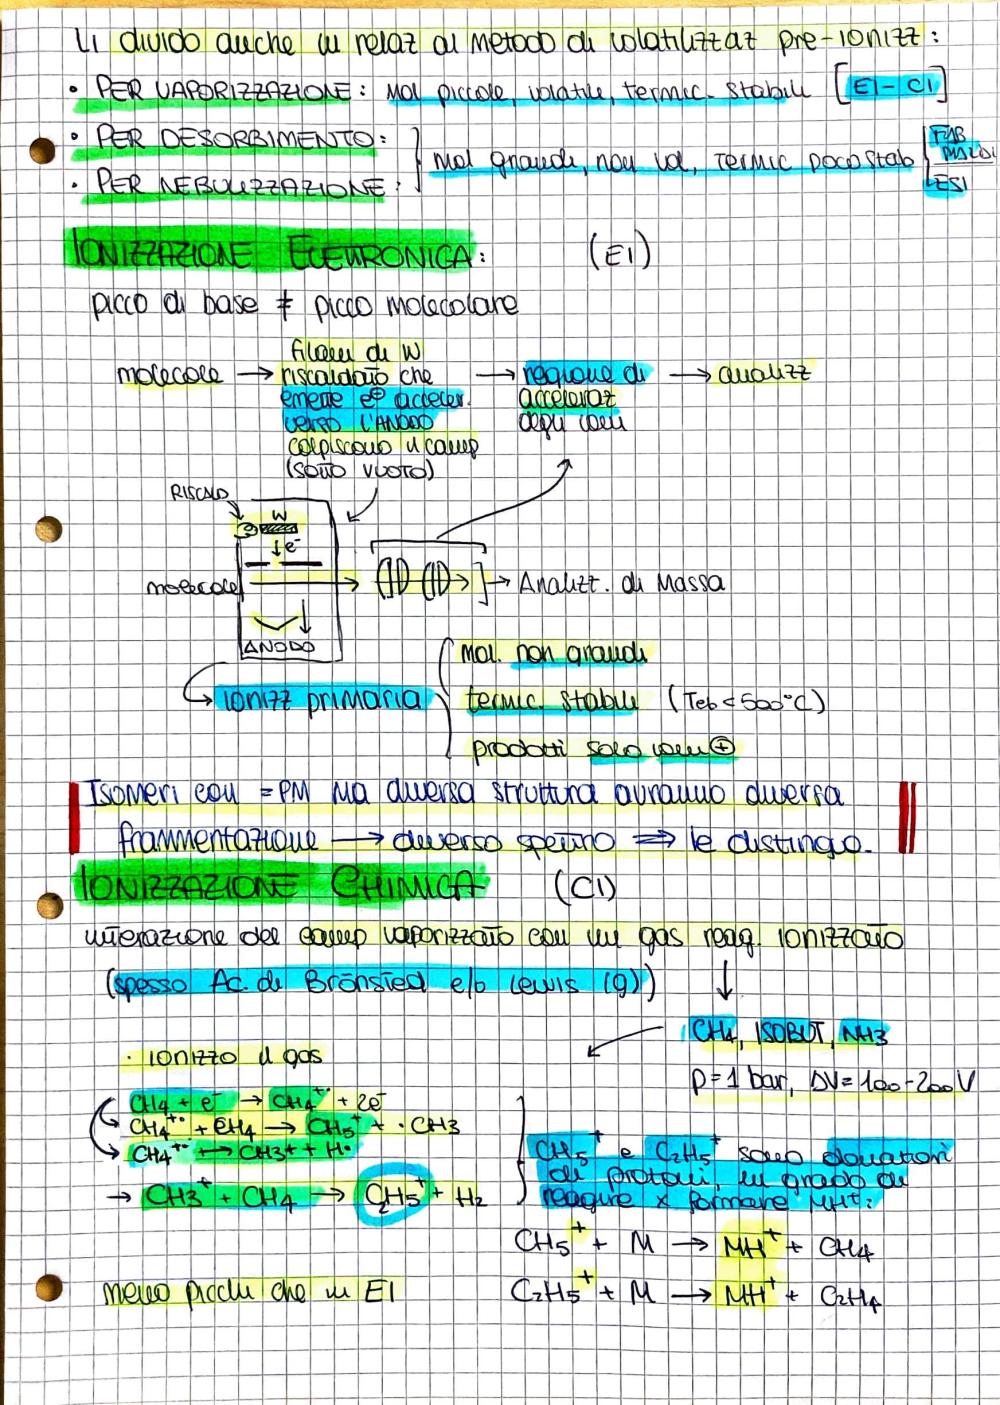 Li divido anche in relaz al metodo di volatilizzaz pre-ionizz:
• PER VAPORIZZAZIONE: Mol piccole, volatile, termic. stabili [EI-CI]
• PER DESORBIMENTO: FAB MALDI
mol grandi, non vol, termic poco stab
• PER NEBULIZZAZIONE: ESI
IONIZZAZIONE ELETTRONICA: (EI)
picco di base ≠ picco molecolare
filam di W
molecole → riscaldato che → regione di → analizz
emette e⊖ acceler. acceleraz
verso l'ANODO degli ioni
colpiscono il camp
(sotto VUOTO)
RISCALD
W
↓e-
molecole → Analizz. di Massa
ANODO
mol. non grandi
ionizz primaria termic. stabile (Teb<500°C)
prodotti solo ioni ⊕
Isomeri con =PM ma diversa struttura avranno diversa
frammentazione → diverso spettro ⇒ le distinguo.
IONIZZAZIONE CHIMICA (CI)
interazione del camp vaporizzato con un gas reag. ionizzato
(spesso Ac. di Brönsted e/o Lewis (g)) ↓
CH4, ISOBUT, NH3
• ionizzo il gas
P=1 bar, ΔV=100-200V
CH4 + e- → CH4+• + 2e-
CH4+• + CH4 → CH5+ + •CH3
CH4+• → CH3+ + H•
→ CH3+ + CH4 → C2H5+ + H2
CH5+ e C2H5+ sono donatori
di protoni, in grado di
reagire x formare MH+:
CH5+ + M → MH+ + CH4
meno picchi che in EI
C2H5+ + M → MH+ + C2H4